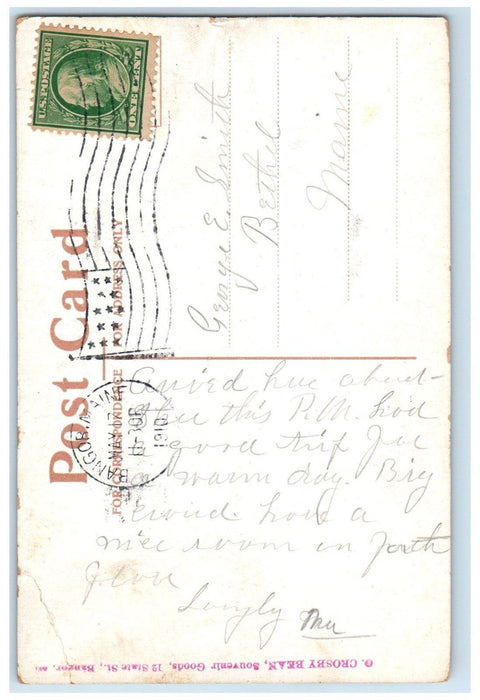 U.S. POSTAGE
ONE CENT
Post Card
FOR CORRESPONDENCE FOR ADDRESS ONLY
BANGOR, MAINE
MAY
11-30P
1910
George E. Smith
Bethel
Maine
Arrived here about
this P.M. had
a good trip for
a warm day. Big
crowd have a
nice room on forth
floor
O. CROSBY BEAN, Souvenir Goods, 12 State St., Bangor,